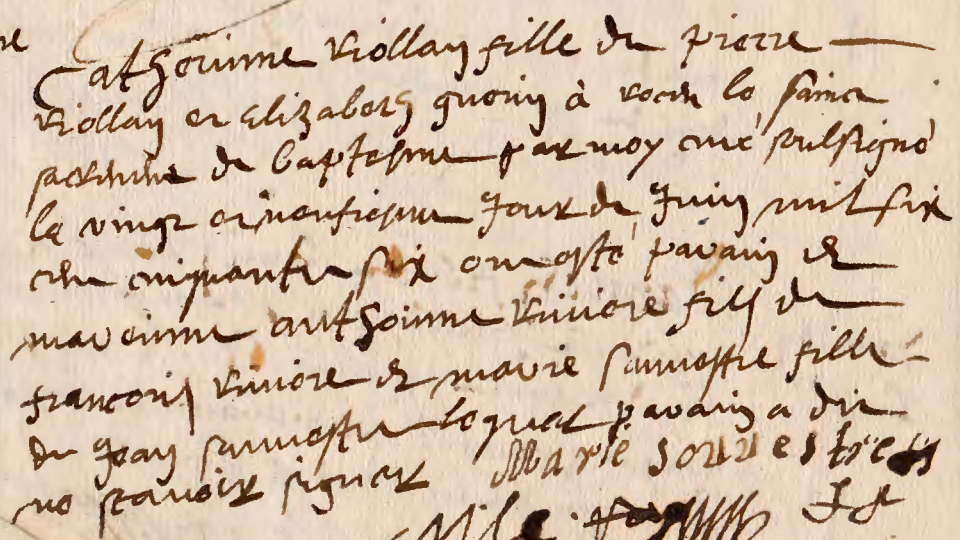 Catherinne Viollan fille de pierre
Viollan et Elizabeth guerin à receu le sainct
sacrement de baptesme par moy curé soulsigné
le vingt et neufiesme Jour de Juin mil six
cen cinquante six ont esté parain et
marainne anthoinne Riviere filz de
francois Riviere et marie servestre fille
de Jean servestre lequel parain a dit
ne scavoir signer Marie sorvestre